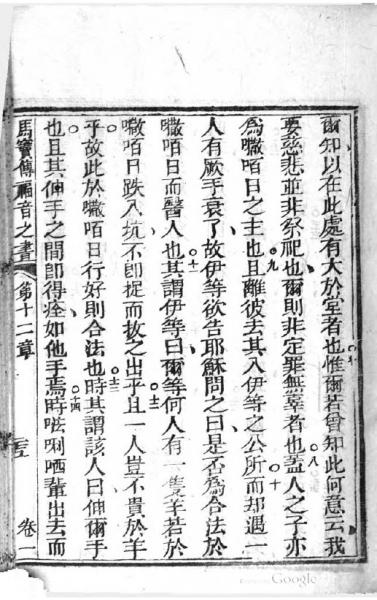 爾知以在此處有大於堂者也惟爾若曾知此何意云我
要慈悲並非祭祀也爾則非定罪無辜者也蓋人之子亦
為嗽咟日之主也且離彼去其入伊等之公所而却遇一
人有厥手衰了故伊等欲告耶穌問之曰是否為合法於
嗽咟日而醫人也其謂伊等曰爾等何人有一隻羊若於
嗽咟日跌入坑不即捉而救之出乎且一人豈不貴於羊
乎故此於嗽咟日行好則合法也時其謂該人曰伸爾手
也且其伸手之間即得痊如他手焉時㕵唎哂輩出去而
馬竇傳福音之書 第十二章 卷一
七
八
九
十
十一
十二
十三
十四
Google